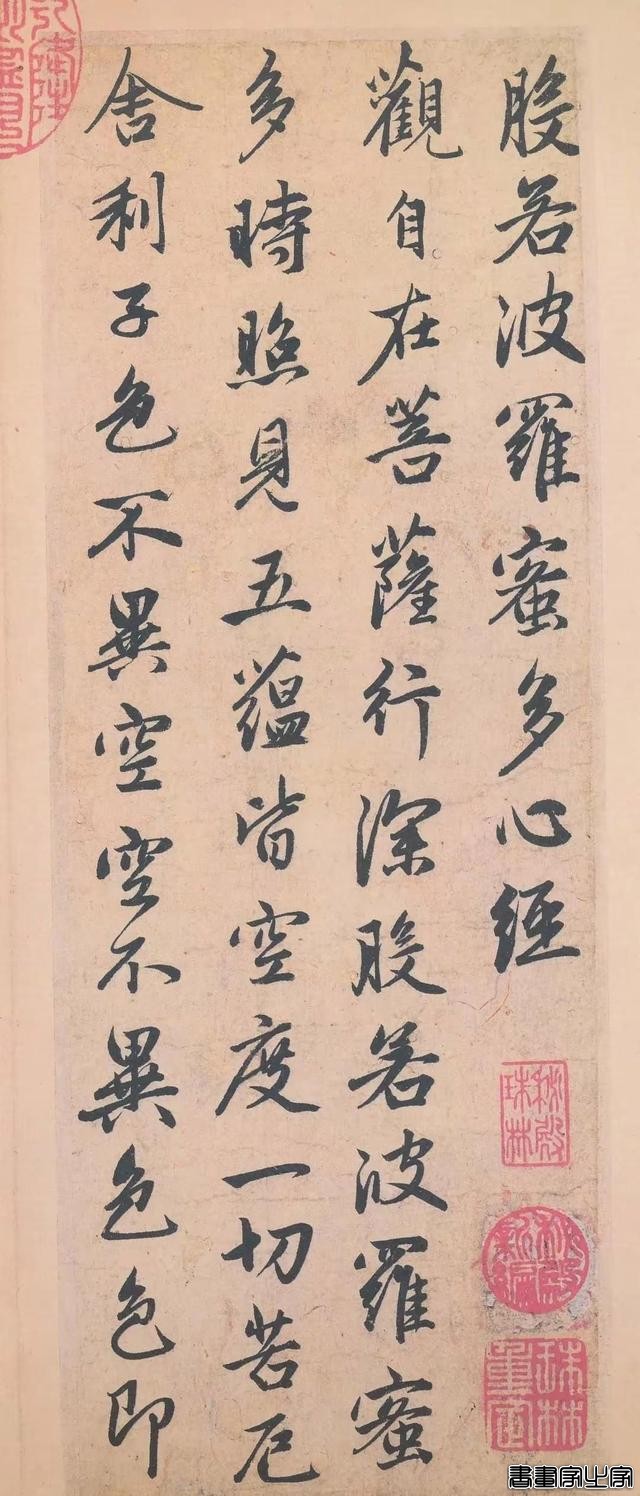 般若波羅蜜多心經
觀自在菩薩行深般若波羅蜜
多時照見五蘊皆空度一切苦厄
舍利子色不異空空不異色色即
秘殿珠林
秘殿新編
珠林重定
書畫家之家